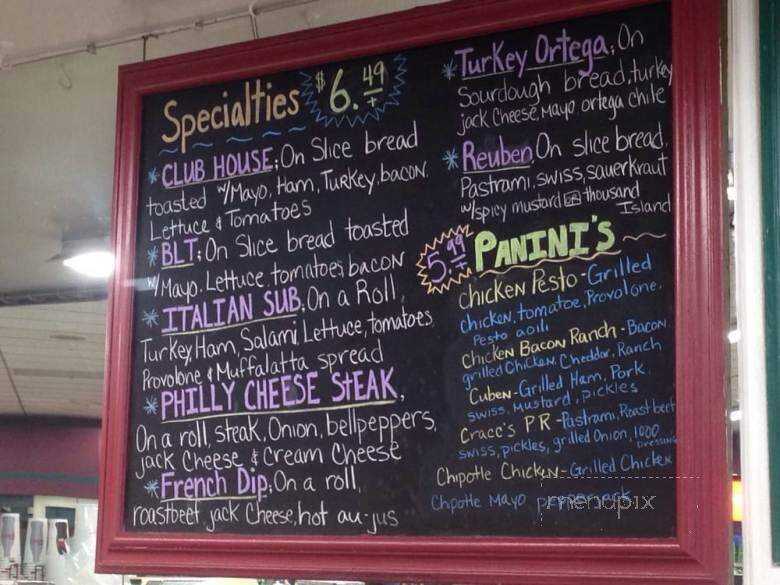 Specialties $6.49+
* CLUB HOUSE; On Slice bread
toasted w/Mayo, Ham, Turkey, bacon
Lettuce & Tomatoes
* BLT; On Slice bread toasted
w/Mayo. Lettuce tomatoes bacon
* ITALIAN SUB, On a Roll
Turkey, Ham, Salami, Lettuce, tomatoes
Provolone & Muffalatta spread
* PHILLY CHEESE STEAK,
On a roll, steak, Onion, bellpeppers,
jack Cheese & Cream Cheese
* French Dip, On a roll,
roastbeef jack Cheese, hot au-jus
* Turkey Ortega, On
Sourdough bread, turkey
jack Cheese, Mayo ortega chile
* Reuben, On slice bread,
Pastrami, swiss, sauerkraut
w/spicy mustard or thousand
Island
5.99+ PANINI'S
Chicken Pesto - Grilled
chicken, tomatoe, Provolone,
Pesto aoili
Chicken Bacon Ranch - Bacon,
grilled Chicken, Cheddar, Ranch
Cuben - Grilled Ham, Pork,
swiss, mustard, pickles
Cracc's PR - Pastrami, Roast beef
swiss, pickles, grilled Onion, 1000
Dressing
Chipotle Chicken - Grilled Chicken
Chpotle Mayo
menupix